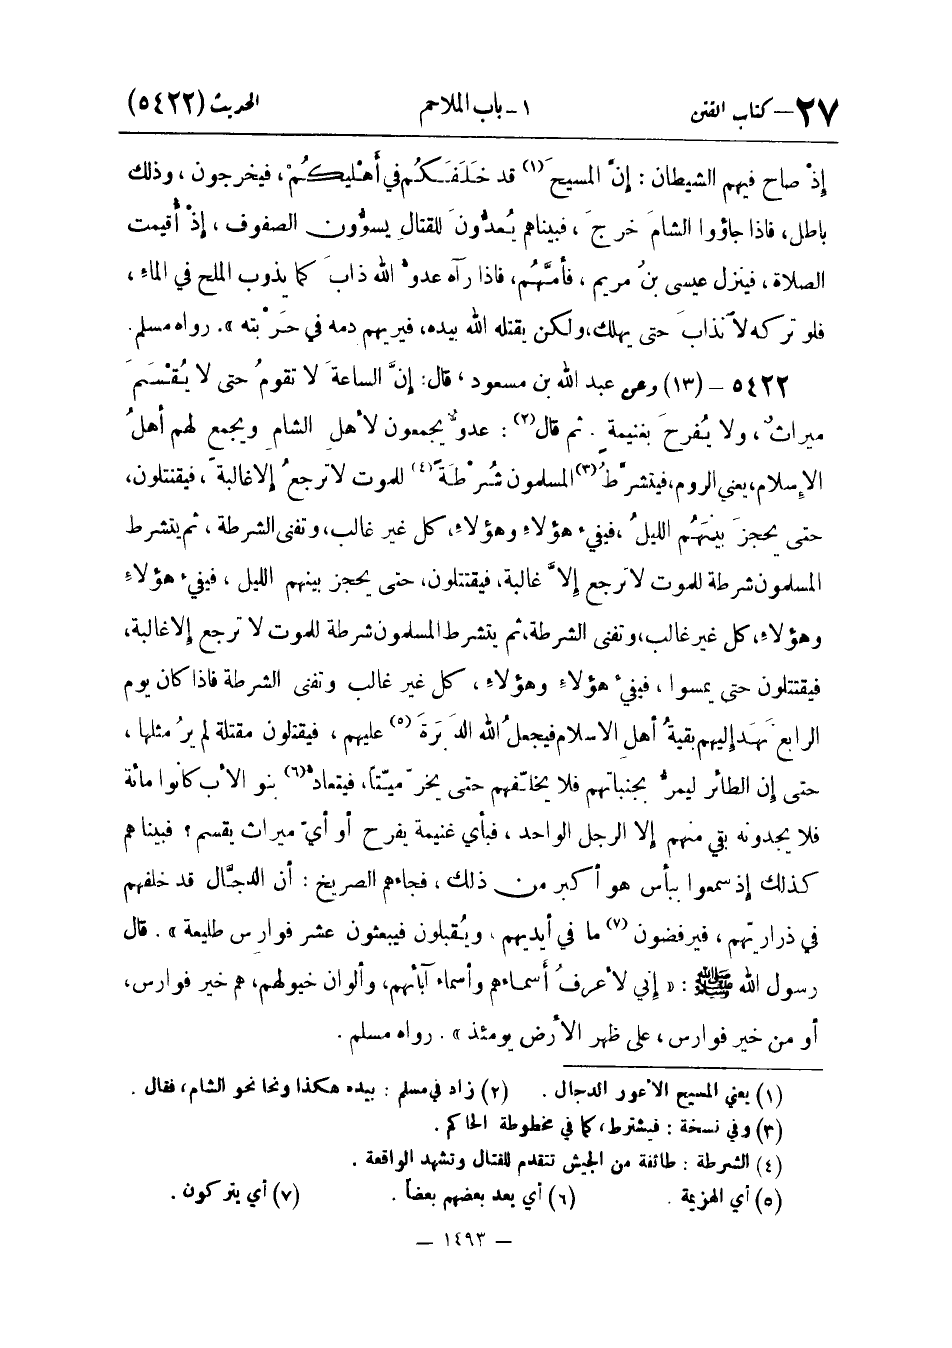 ٢٧ – كتاب الفتن ١ – باب الملاحم الحديث (٥٤٢٢)
إذْ صاح فيهم الشيطان : إنَّ المسيحَ (١) قد خَلَفَكُم في أَهْليكُمْ، فيخرجون ، وذلك
باطل، فاذا جاؤوا الشامَ خرجَ ، فبيناهم يُعدُّونَ للقتالِ يسوُّون الصفوف ، إذْ أُقيمت
الصلاة ، فينزل عيسى بنُ مريم ، فأمَّهُم، فاذا رآه عدوُّ الله ذابَ كما يذوب الملح في الماء ،
فلو تركه لاْنذابَ حتى يهلك، ولكن يقتله الله بيده، فيريهم دمه في حَرْبته » . رواه مسلم.
٥٤٢٢ – (١٣) وعن عبد الله بن مسعود ، قال: إنَّ الساعةَ لا تقومُ حتى لا يُقْسَمَ
ميراثٌ، ولا يُفرحَ بغنيمةٍ . ثم قال (٢) : عدوٌّ يجمعون لأهل الشام ويجمع لهم أهلُ
الإسلام، يعني الروم، فيتشرَّطُ (٣) المسلمون شُرْطَةً (٤) للموت لا ترجعُ إلا غالبةً ، فيقتتلون،
حتى يحجزَ بينَهُم الليلُ ، فيفيء هؤلاء وهؤلاء، كل غير غالب، وتفنى الشرطة ، ثم يتشرط
المسلمون شرطة للموت لا ترجع إلاَّ غالبة، فيقتتلون، حتى يحجز بينهم الليل ، فيفيء هؤلاء
وهؤلاء، كل غير غالب، وتفنى الشرطة، ثم يتشرط المسلمون شرطة للموت لا ترجع إلا غالبة،
فيقتتلون حتى يمسوا ، فيفيء هؤلاء وهؤلاء ، كل غير غالب وتفنى الشرطة فاذا كان يوم
الرابع نَهَد إليهم بقيةُ أهل الاسلام فيجعلُ الله الدَبَرَةَ (٥) عليهم ، فيقتلون مقتلة لم يرُ مثلها ،
حتى إن الطائر ليمرُّ بجنباتهم فلا يخلّفهم حتى يخرّ ميّتاً، فيتعادُّ (٦) بنو الأب كانوا مائة
فلا يجدونه بقي منهم إلا الرجل الواحد ، فبأي غنيمة يفرح أو أيّ ميراث يقسم ؟ فبيناهم
كذلك إذ سمعوا ببأس هو أكبر من ذلك ، فجاءهم الصريخ : أن الدجَّال قد خلفهم
في ذراريّهم ، فيرفضون (٧) ما في أيديهم ، ويُقبلون فيبعثون عشر فوارس طليعة » . قال
رسول الله ﷺ : « إني لأعرفُ أسماءهم وأسماء آبائهم، وألوان خيولهم، هم خير فوارس،
أو من خير فوارس، على ظهر الأرض يومئذ » . رواه مسلم .
(١) يعني المسيح الأعور الدجال . (٢) زاد في مسلم : بيده هكذا ونحا نحو الشام، فقال .
(٣) وفي نسخة : فيشترط، كما في مخطوطة الحاكم .
(٤) الشرطة : طائفة من الجيش تتقدم للقتال وتشهد الواقعة .
(٥) أي الهزيمة . (٦) أي يعد بعضهم بعضاً . (٧) أي يتركون .
– ١٤٩٣ –